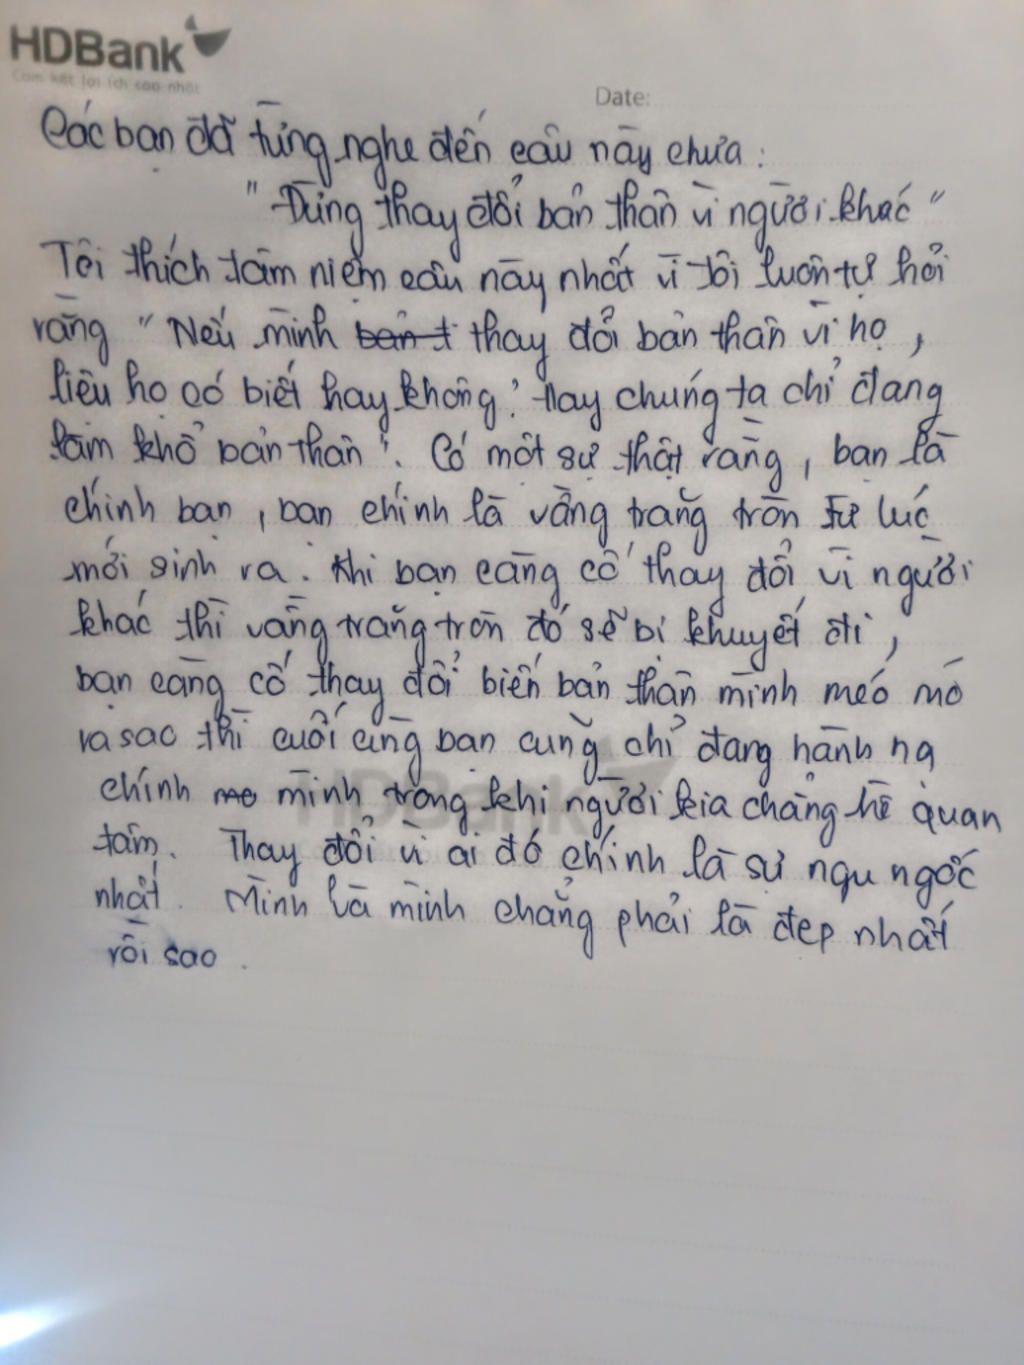 HDBank
Cam kết lợi ích cao nhất
Date:
Các bạn đã từng nghe đến câu này chưa :
" Đừng thay đổi bản thân vì người khác "
Tôi thích tâm niệm câu này nhất vì tôi luôn tự hỏi
rằng " Nếu mình bản t thay đổi bản thân vì họ ,
liệu họ có biết hay không? Hay chúng ta chỉ đang
làm khổ bản thân". Có một sự thật rằng , bạn là
chính bạn , bạn chính là vầng trăng tròn từ lúc
mới sinh ra . Khi bạn càng cố thay đổi vì người
khác thì vầng trăng tròn đó sẽ bị khuyết đi ,
bạn càng cố thay đổi biến bản thân mình méo mó
ra sao thì cuối cùng bạn cũng chỉ đang hành hạ
chính me mình trong khi người kia chẳng hề quan
tâm. Thay đổi vì ai đó chính là sự ngu ngốc
nhất . Mình là mình chẳng phải là đẹp nhất
rồi sao .
HDBank